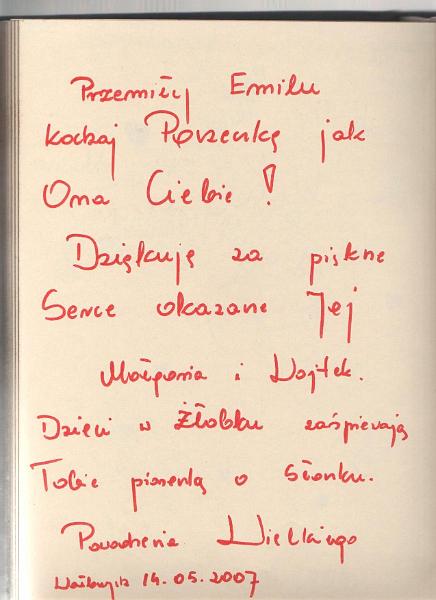 Przemiły Emilu
kochaj Piosenkę jak
Ona Ciebie!
Dziękuję za piękne
Serce okazane Jej
Małgosia i Wojtek.
Dzieci w Żłobku zaśpiewają
Tobie piosenkę o słonku.
Powodzenia Wielkiego
14.05.2007